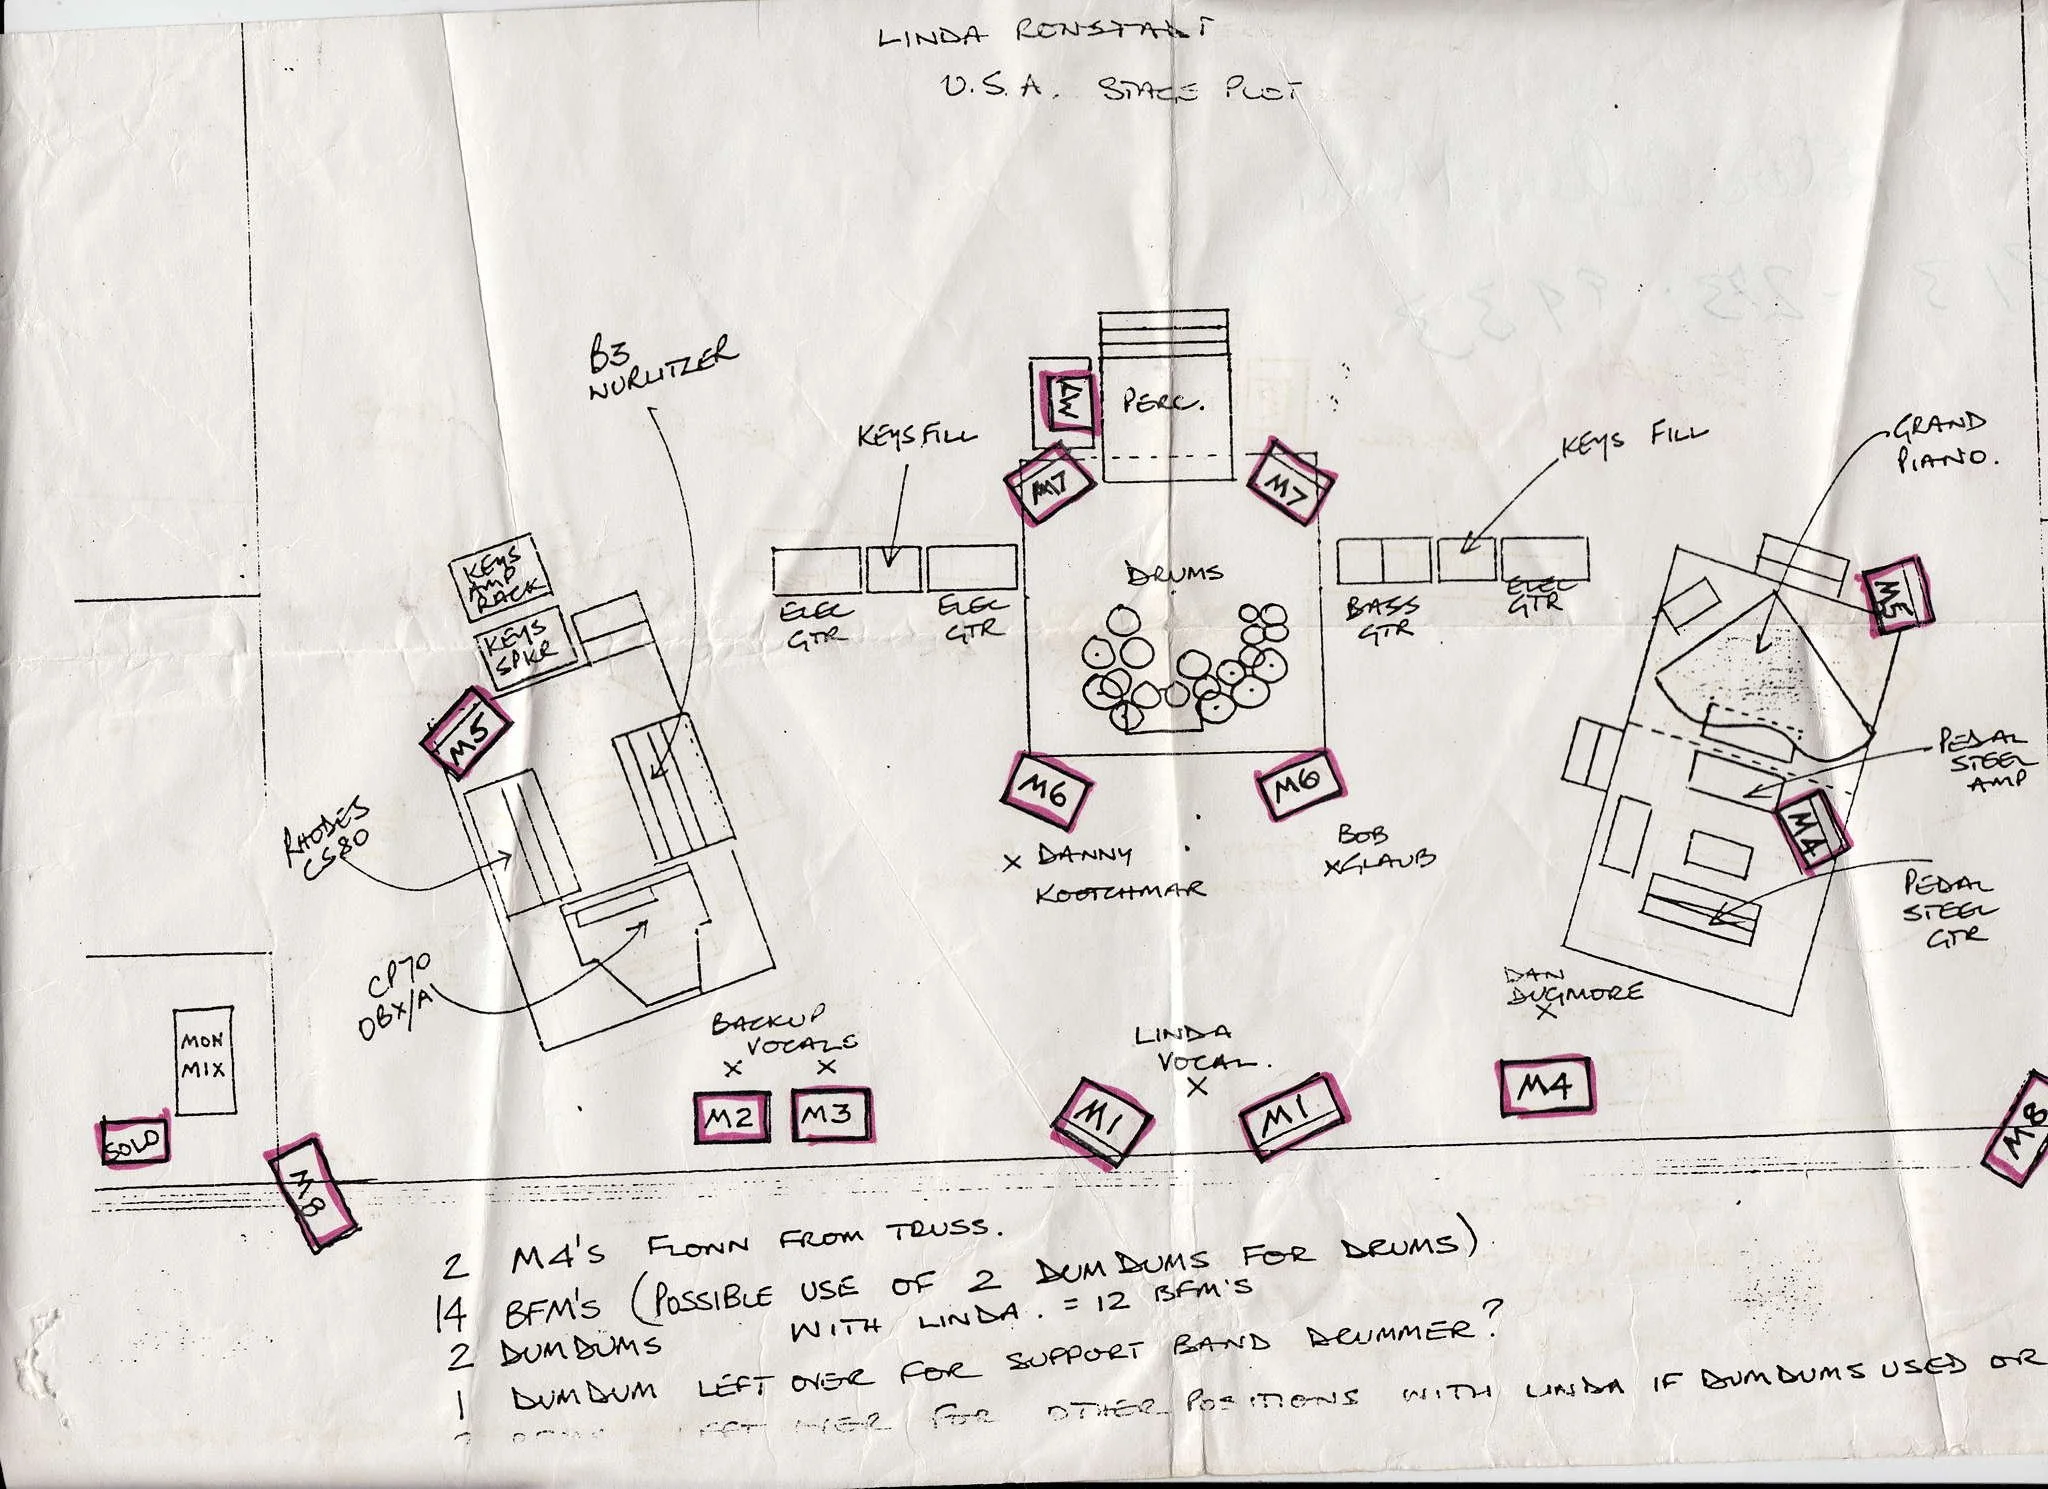 LINDA RONSTALT
U.S.A. STAGE PLOT
B3
WURLITZER
KEYS FILL
PERC.
KEYS FILL
GRAND
PIANO.
M7
M7
KEYS
AMP
RACK
KEYS
SPKR
ELEC
GTR
ELEC
GTR
DRUMS
BASS
GTR
ELEC
GTR
M5
M5
RHODES
CS80
M6
M6
PEDAL
STEEL
AMP
M4
X DANNY
KOOTCHMAR
BOB
X GLAUB
PEDAL
STEEL
GTR
CP70
DBX/A
DAN
DUGMORE
X
BACKUP
VOCALS
X X
LINDA
VOCAL.
X
MON
MIX
SOLO
M8
M2
M3
M1
M1
M4
M8
2 M4'S FLOWN FROM TRUSS.
14 BFM'S (POSSIBLE USE OF 2 DUMDUMS FOR DRUMS)
2 DUMDUMS WITH LINDA. = 12 BFM'S
1 DUMDUM LEFT OVER FOR SUPPORT BAND DRUMMER?
OVER FOR OTHER POSITIONS WITH LINDA IF DUMDUMS USED OR